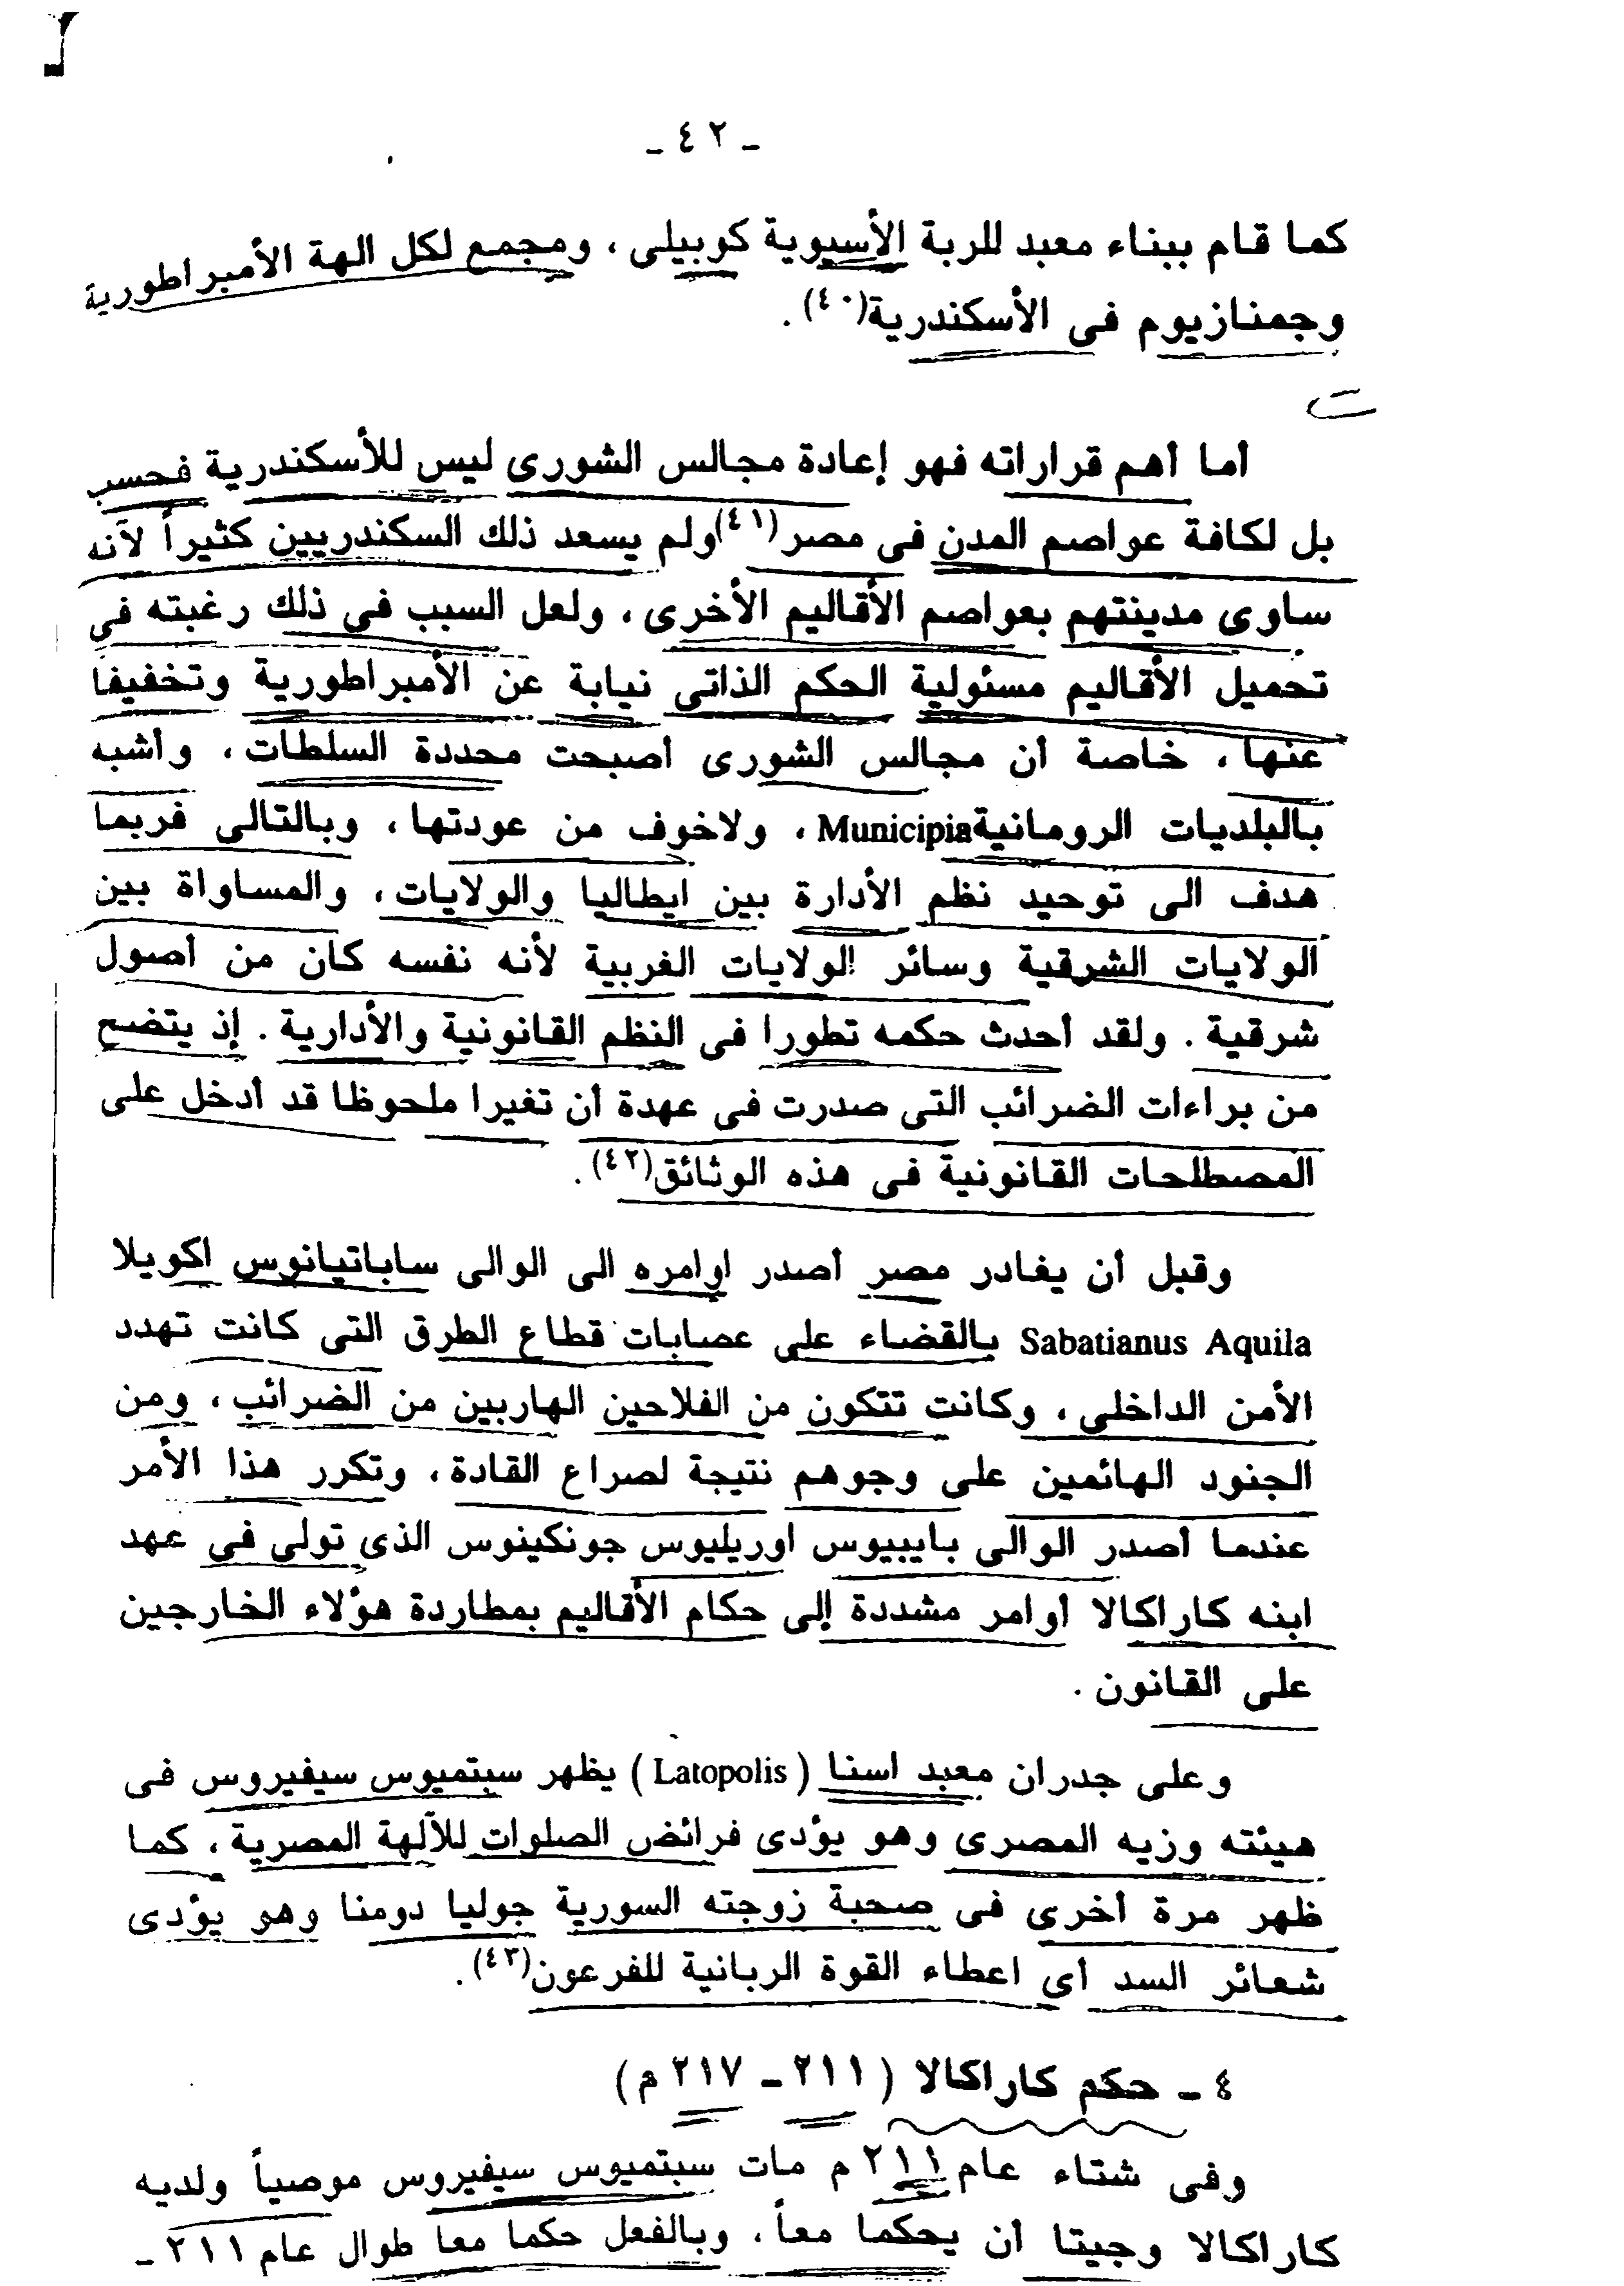 - ٤٢ -
كما قام ببناء معبد للربة الأسيوية كوبيلى ، ومجمع لكل الهة الأمبراطورية
وجمنازيوم فى الأسكندرية(٤٠) .
أما أهم قراراته فهو إعادة مجالس الشورى ليس للأسكندرية فحسب
بل لكافة عواصم المدن فى مصر(٤١)ولم يسعد ذلك السكندريين كثيراً لآنه
ساوى مدينتهم بعواصم الأقاليم الأخرى ، ولعل السبب في ذلك رغبته في
تحميل الأقاليم مسئولية الحكم الذاتى نيابة عن الأمبراطورية وتخفيفا
عنها ، خاصة أن مجالس الشورى أصبحت محددة السلطات ، وأشبه
بالبلديات الرومانيةMunicipia ، ولاخوف من عودتها ، وبالتالى فربما
هدف الى توحيد نظم الأدارة بين ايطاليا والولايات ، والمساواة بين
الولايات الشرقية وسائر الولايات الغربية لأنه نفسه كان من أصول
شرقية . ولقد أحدث حكمه تطورا فى النظم القانونية والأدارية . إذ يتضح
من براءات الضرائب التى صدرت فى عهدة أن تغيرا ملحوظا قد أدخل على
المصطلحات القانونية فى هذه الوثائق(٤٢) .
وقبل أن يغادر مصر أصدر اوامره الى الوالى ساباتيانوس اكويلا
Sabatianus Aquila بالقضاء على عصابات قطاع الطرق التى كانت تهدد
الأمن الداخلى ، وكانت تتكون من الفلاحين الهاربين من الضرائب ، ومن
الجنود الهائمين على وجوهم نتيجة لصراع القادة ، وتكرر هذا الأمر
عندما أصدر الوالى بايبيوس اوريليوس جونكينوس الذى تولى في عهد
ابنه كاراكالا أوامر مشددة إلى حكام الأقاليم بمطاردة هؤلاء الخارجين
على القانون .
وعلى جدران معبد اسنا ( Latopolis ) يظهر سبتميوس سيفيروس فى
هيئته وزيه المصرى وهو يؤدى فرائض الصلوات للآلهة المصرية ، كما
ظهر مرة أخرى فى صحبة زوجته السورية جوليا دومنا وهو يؤدى
شعائر السد أى اعطاء القوة الربانية للفرعون(٤٣) .
٤ - حكم كاراكالا ( ٢١١ - ٢١٧ م )
وفى شتاء عام ٢١١ م مات سبتميوس سيفيروس موصياً ولديه
كاراكالا وجيتا أن يحكما معاً ، وبالفعل حكما معا طوال عام ٢١١ -